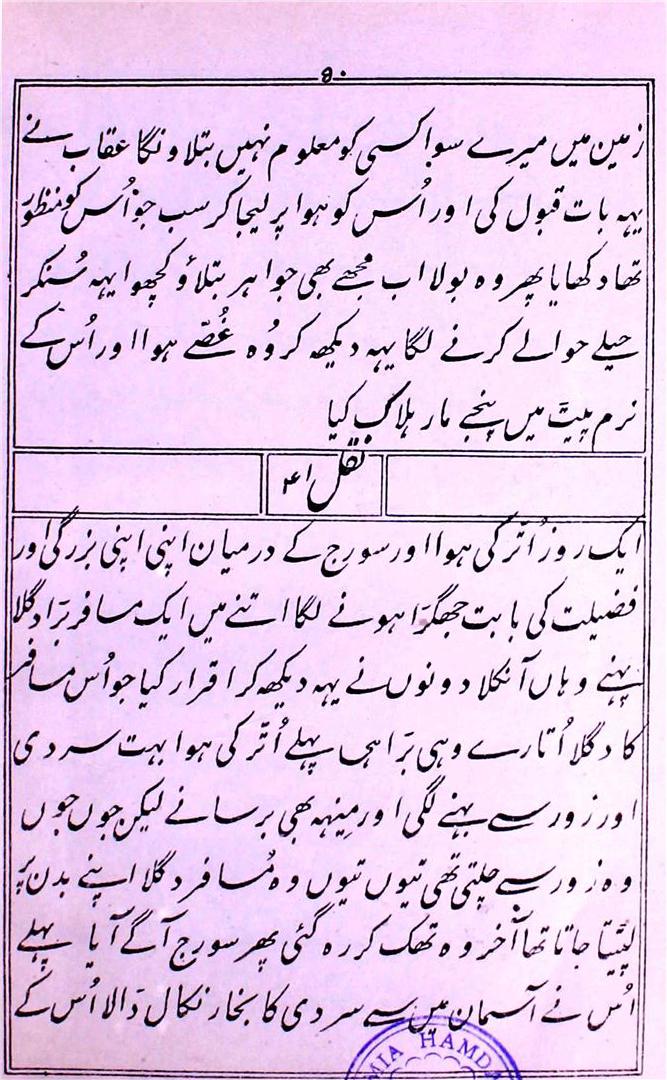 ۵۰
زمین میں میرے سوا کسی کو معلوم نہیں بتلاونگا عقاب نے
یہہ بات قبول کی اور اُس کو ہوا پر لیجا کر سب جو اُس کو منظور
تھا دکھایا پھر وہ بولا اب مجھے بھی جواہر بتلاؤ کچھوا یہہ سُنکر
حیلے حوالے کرنے لگا یہہ دیکھہ کر وُہ غُصّے ہوا اور اُس کے
نرم پیٹ میں پنجے مار ہلاک کیا
نقل ۴۱
ایک روز اُتّر کی ہوا اور سورج کے درمیان اپنی اپنی بزرگی اور
فضیلت کی بابت جھگڑا ہونے لگا اتنے میں ایک مسافر بڑا دگلا
پہنے وہاں آنکلا دونوں نے یہہ دیکھہ کر اقرار کیا جو اُس مسافر
کا دگلا اُتارے وہی بڑا ہی پہلے اُتّر کی ہوا بہت سردی
اور زور سے بہنے لگی اور مِینہہ بھی برسانے لیکن جوں جوں
وہ زور سے چلتی تھی تیوں تیوں وہ مُسافر دگلا اپنے بدن پر
لپٹیتا جاتا تھا آخر وہ تھک کر رہ گئی پھر سورج آگے آیا پہلے
اُس نے آسمان میں سے سردی کا بخار نکال ڈالا اُس کے
MIA HAMDA